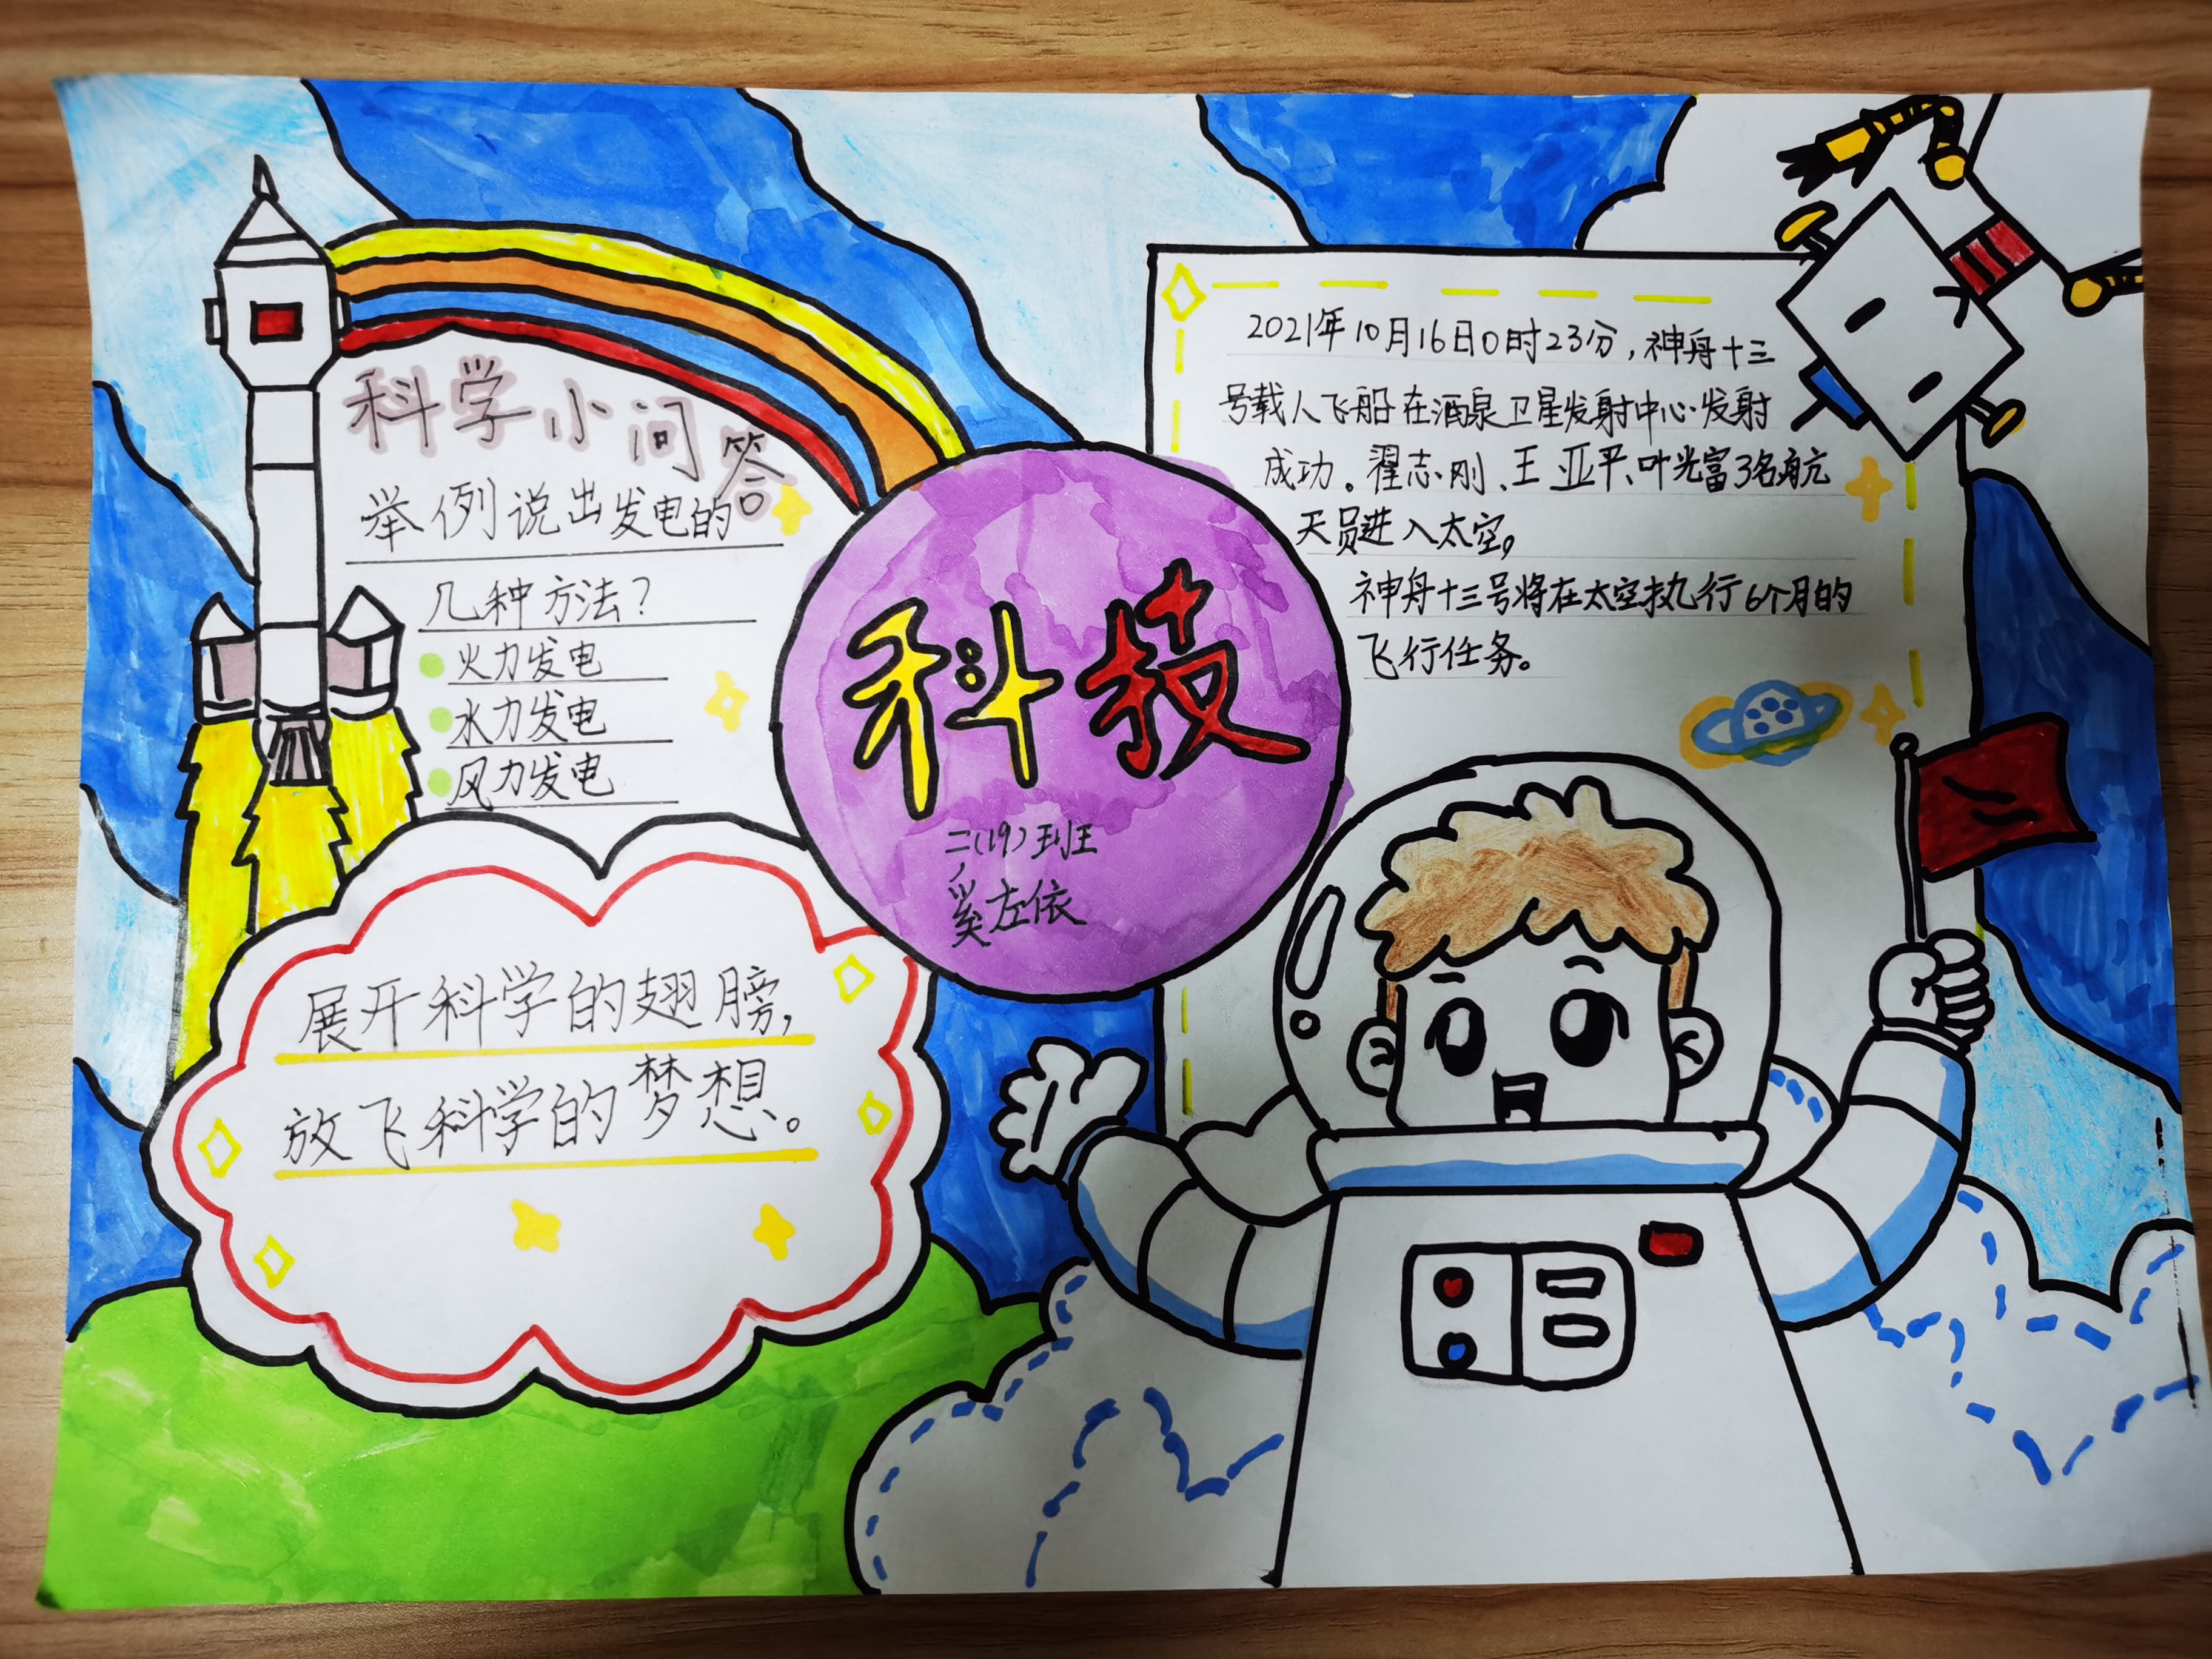 科学小问答
举例说出发电的
几种方法?
火力发电
水力发电
风力发电
科技
二(19)班
奚左依
2021年10月16日0时23分,神舟十三
号载人飞船在酒泉卫星发射中心发射
成功。翟志刚、王亚平、叶光富3名航
天员进入太空。
神舟十三号将在太空执行6个月的
飞行任务。
展开科学的翅膀,
放飞科学的梦想。